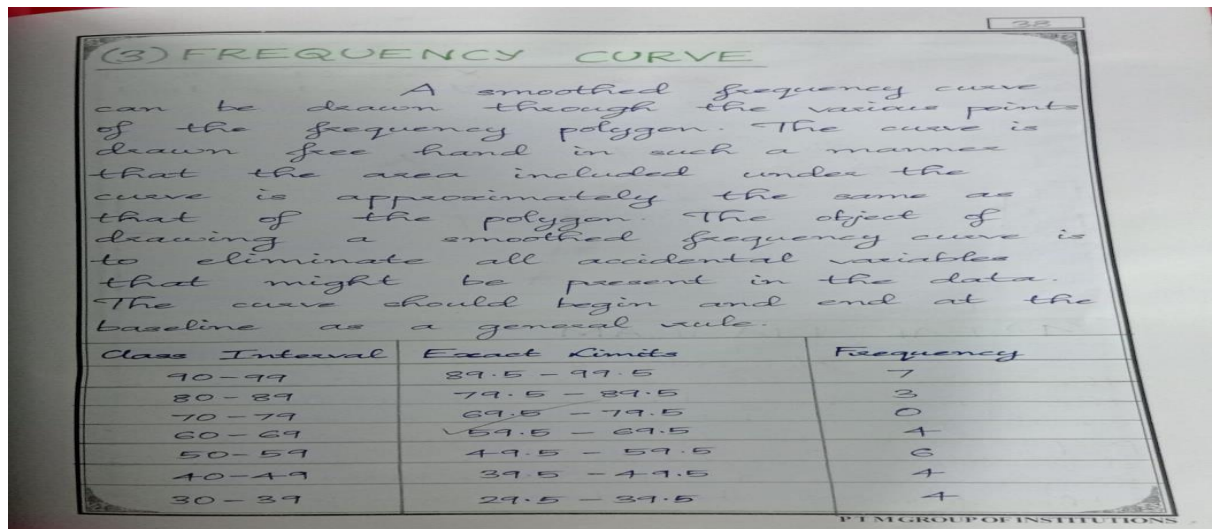 38
(3) FREQUENCY CURVE
A smoothed frequency curve
can be drawn through the various points
of the frequency polygon. The curve is
drawn free hand in such a manner
that the area included under the
curve is approximately the same as
that of the polygon. The object of
drawing a smoothed frequency curve is
to eliminate all accidental variables
that might be present in the data.
The curve should begin and end at the
baseline as a general rule.
Class Interval Exact Limits Frequency
90-99 89.5 - 99.5 7
80-89 79.5 - 89.5 3
70-79 69.5 - 79.5 0
60-69 59.5 - 69.5 4
50-59 49.5 - 59.5 6
40-49 39.5 - 49.5 4
30-39 29.5 - 39.5 4
PTM GROUP OF INSTITUTIONS